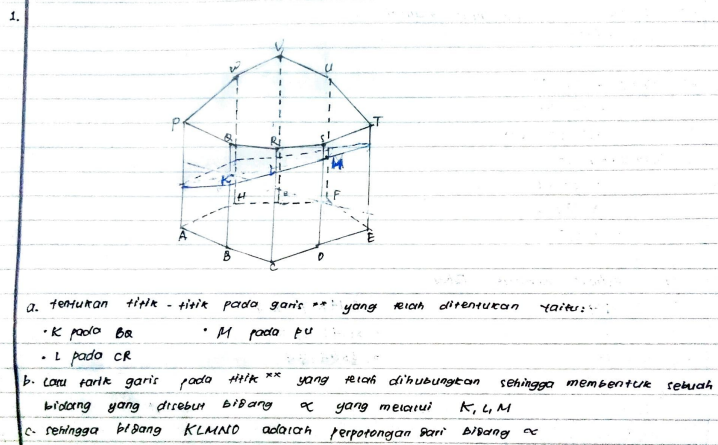 1.
V
W
U
P
T
Q
R
S
K
L
M
H
F
A
E
B
D
C
a. tentukan titik - titik pada garis ** yang telah ditentukan yaitu:
• K pada BQ • M pada FU
• L pada CR
b. Lalu tarik garis pada titik ** yang telah dihubungkan sehingga membentuk sebuah
bidang yang disebut bidang ∝ yang melalui K, L, M
c. sehingga bidang KLMNO adalah perpotongan dari bidang ∝